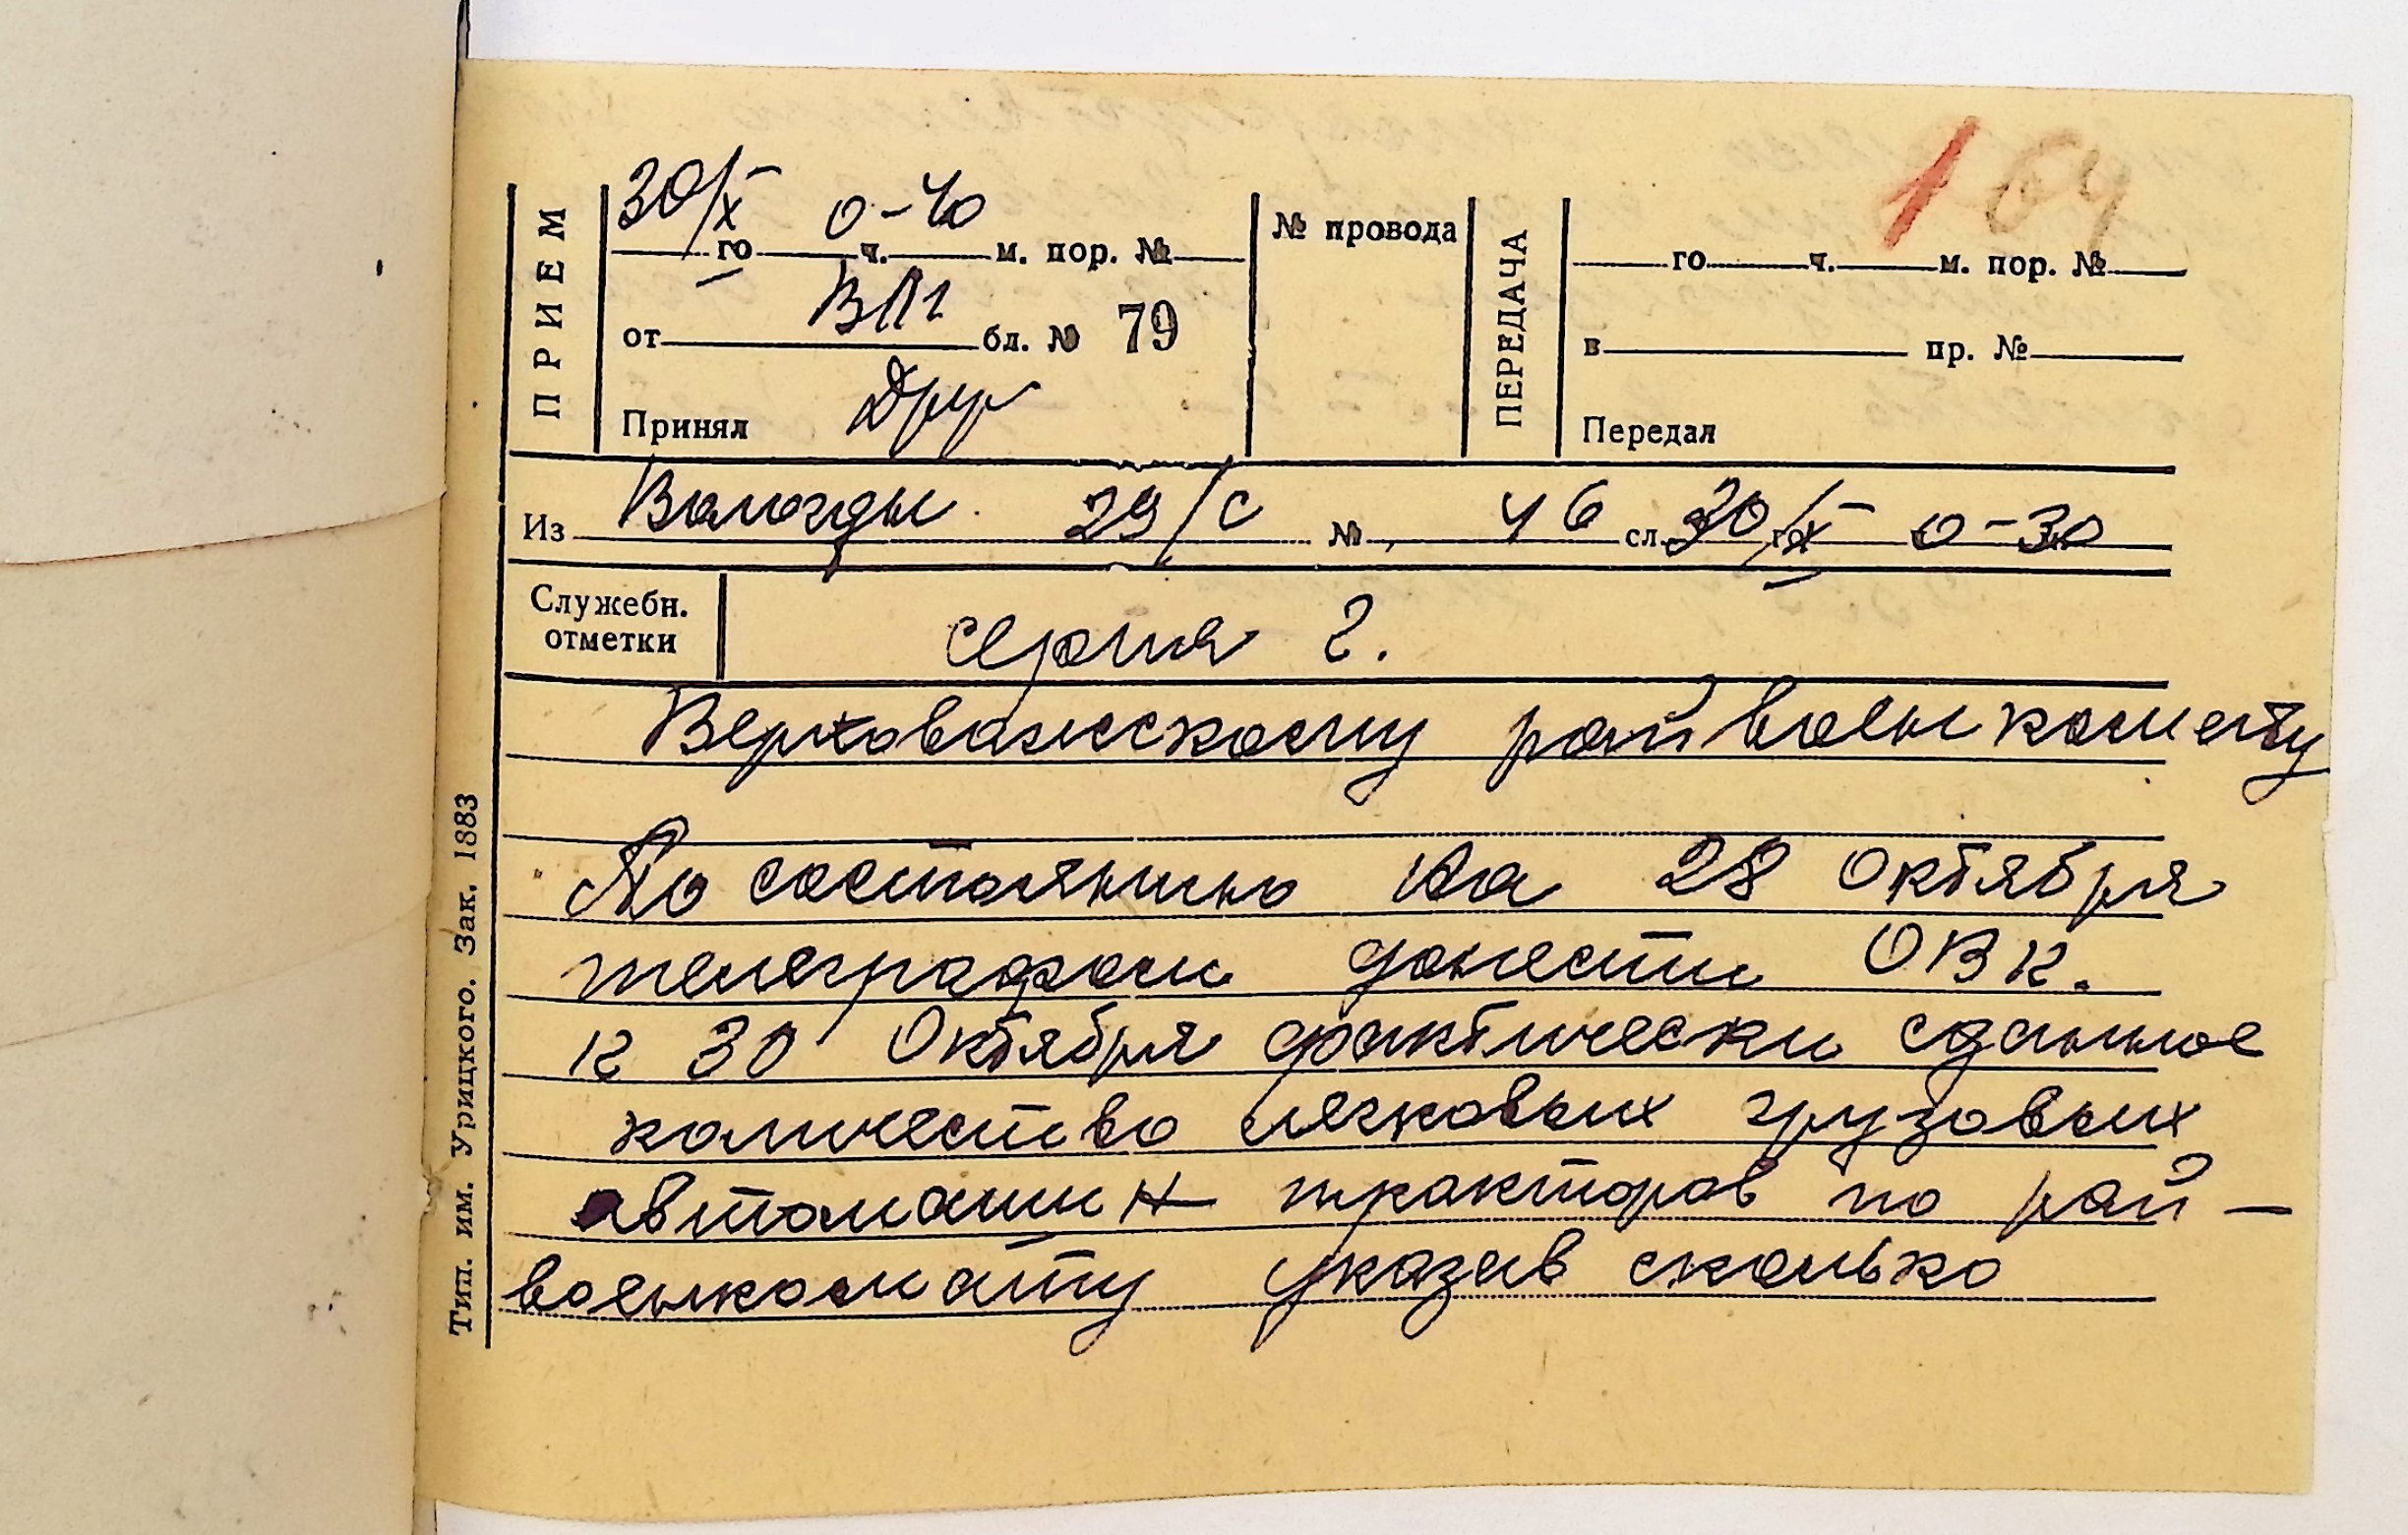 164
ПРИЕМ
30/X 0-40
го ч. м. пор. №
от ВЛг бл. № 79
Принял
№ провода
ПЕРЕДАЧА
го ч. м. пор. №
в пр. №
Передал
Из Вологды 29/с № 46 сл. 30/X 0-30
Служебн. отметки
серия Г.
Верховажскому райвоенкомату
По состоянию на 28 Октября
телеграфом донести ОВК.
к 30 Октября фактически сданное
количество легковых грузовых
автомашин тракторов по рай-
военкомату указав сколько
Тип. им. Урицкого. Зак. 1883